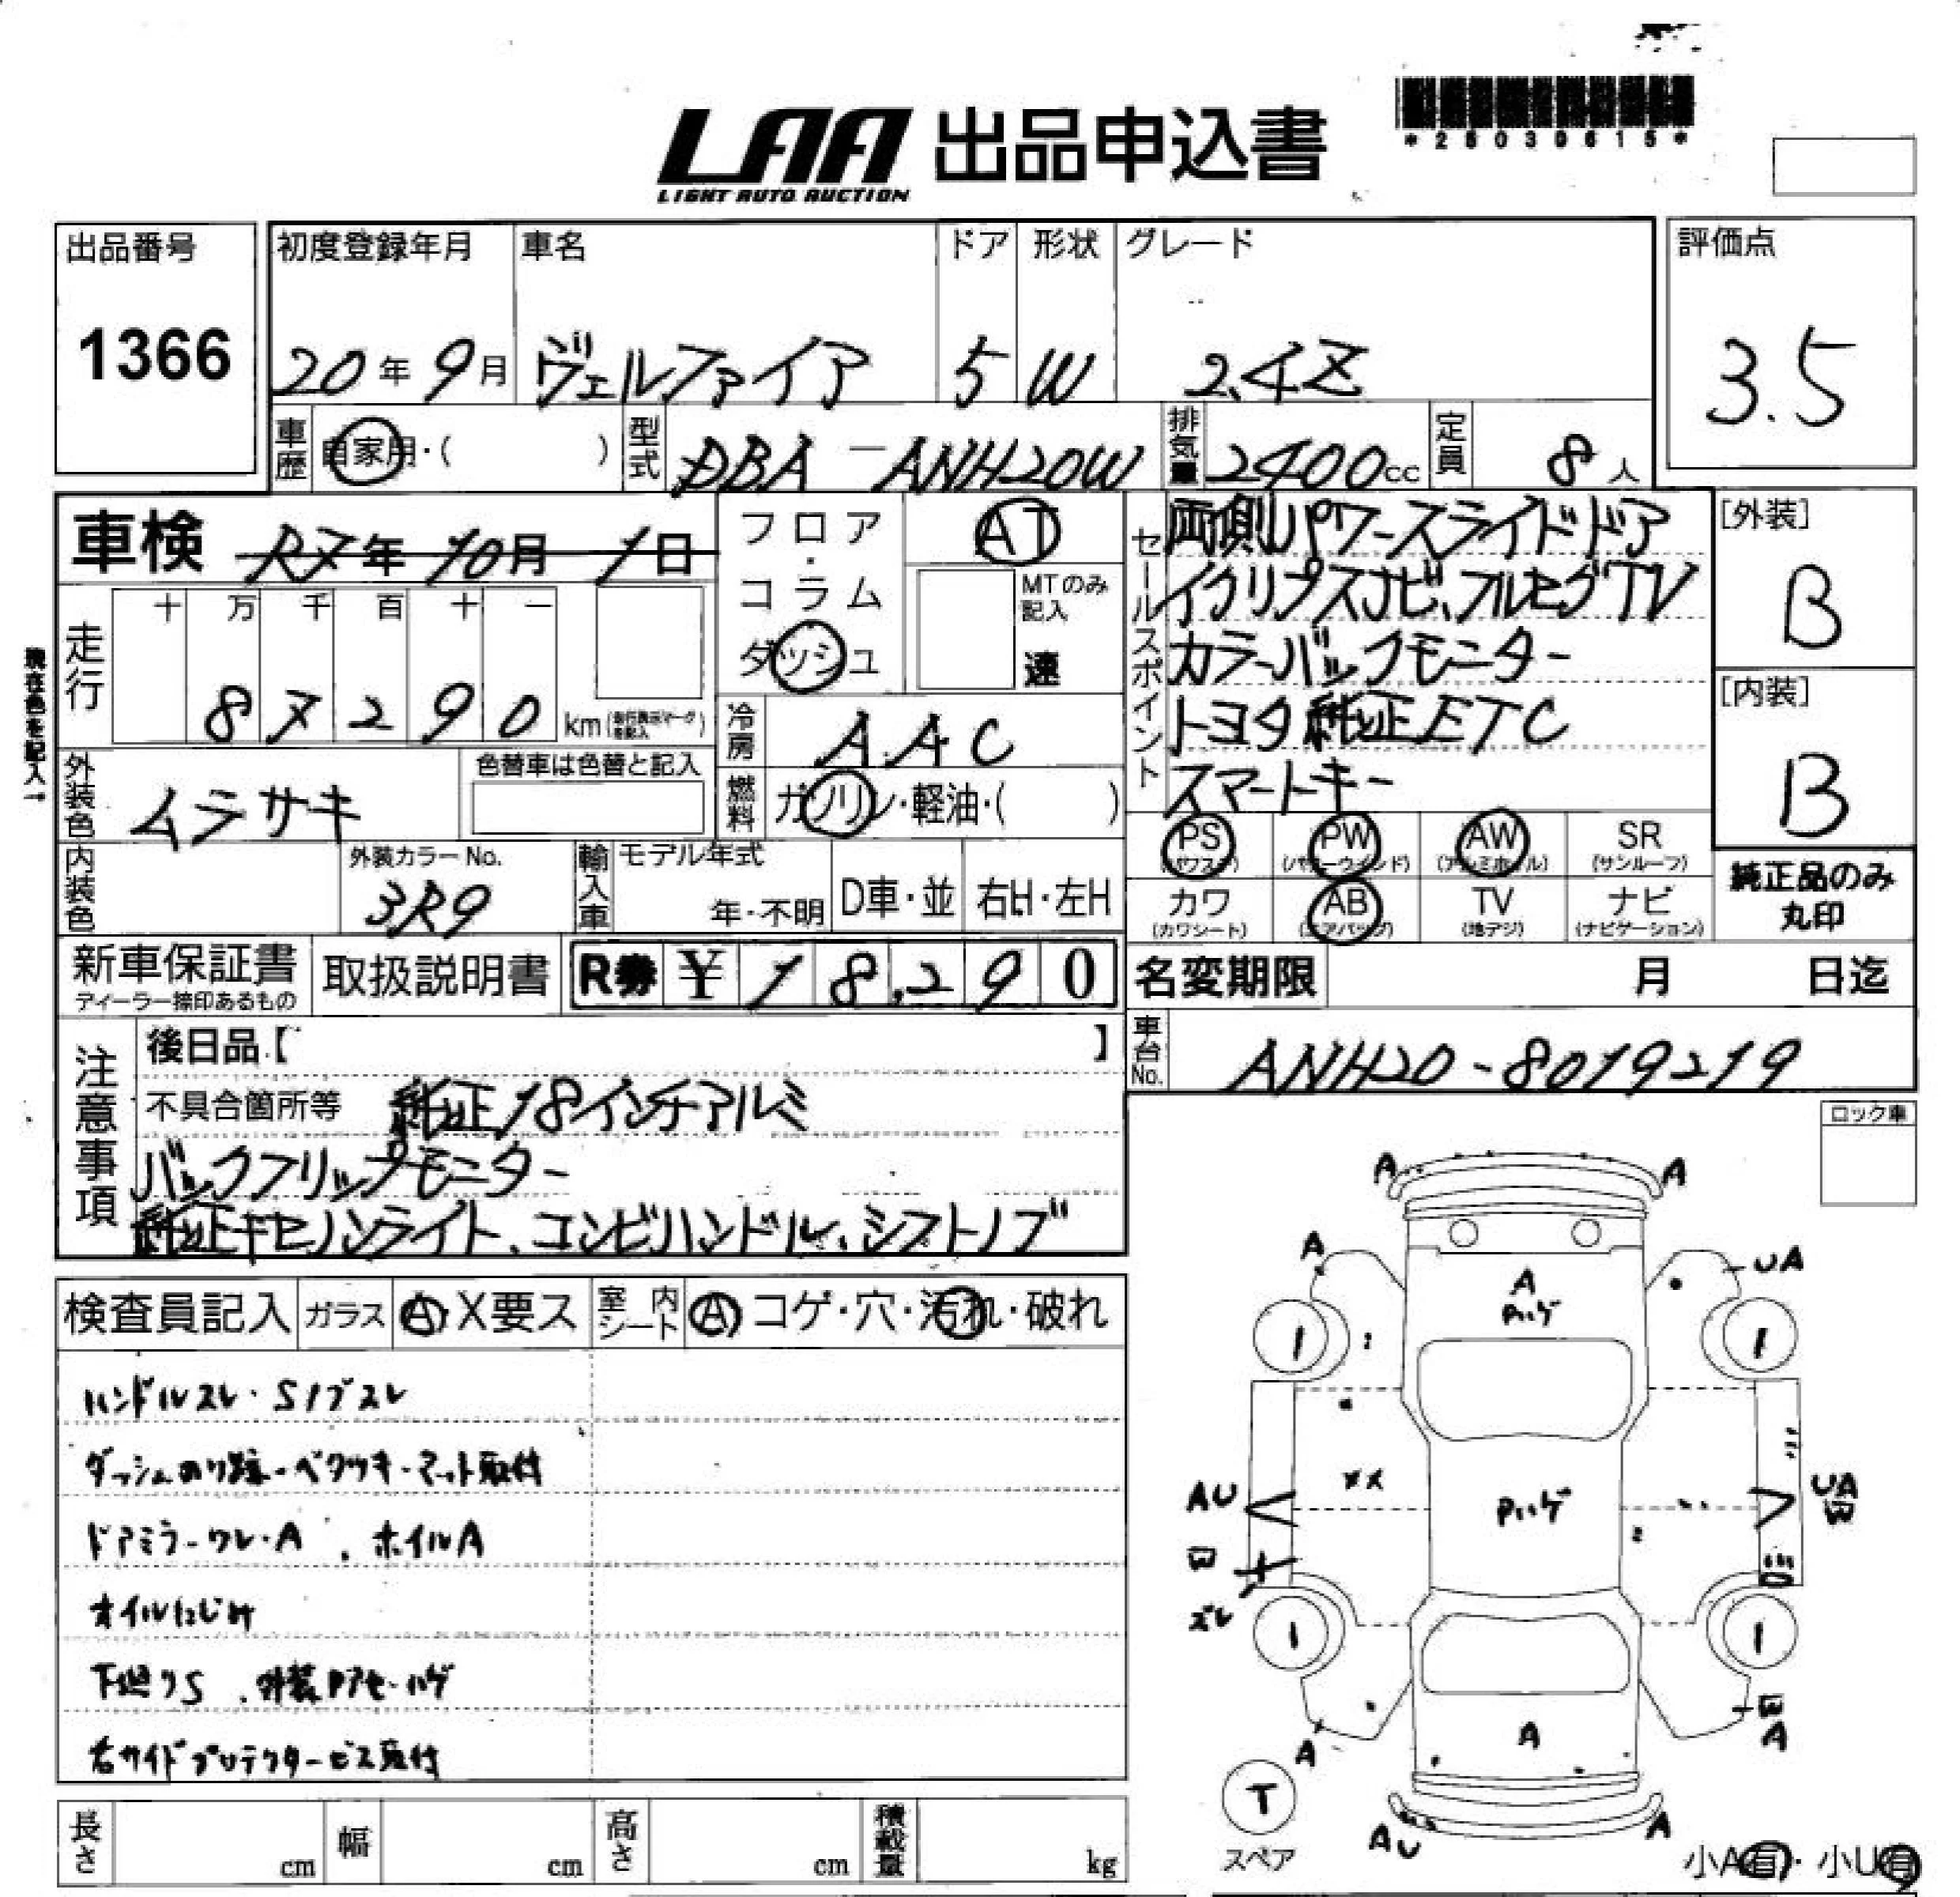 LAA 出品申込書
LIGHT AUTO AUCTION
出品番号
1366
初度登録年月 車名 ドア 形状 グレード
20年9月 ヴェルファイア 5 W 2.4Z
評価点
3.5
車歴 自家用・( ) 型式 DBA-ANH20W 排気量 2400cc 定員 8人
車検 R7年10月1日
フロア・コラム ダッシュ
AT
MTのみ記入
速
セールスポイント
両側パワースライドドア
イクリプスナビ、フルセグTV
カラーバックモニター
トヨタ純正ETC
スマートキー
[外装]
B
[内装]
B
現在色を記入→
走行 十 万 千 百 十 一
87290 km
冷房 AAC
外装色 ムラサキ 色替車は色替と記入
燃料 ガソリン・軽油・( )
PS (パワステ) PW (パワーウインド) AW (アルミホイル) SR (サンルーフ)
カワ (カワシート) AB (エアバッグ) TV (地デジ) ナビ (ナビゲーション)
純正品のみ丸印
内装色 外装カラーNo. 3R9 輸入車 モデル年式 年・不明 D車・並 右H・左H
新車保証書 ディーラー捺印あるもの 取扱説明書 R券 ¥18,290
名変期限 月 日迄
車台No. ANH20-8019219
注意事項
後日品【 】
不具合箇所等 純正18インチアルミ
バックフリップモニター
純正キセノンライト、コンビハンドル、シフトノブ
検査員記入 ガラス A X要ス 室内シート A コゲ・穴・汚れ・破れ
ハンドルスレ・Sノブスレ
ダッシュのり跡・ベタツキ・マット取付
ドアミラーワレ・A、ホイルA
オイルにじみ
下廻りS、外装Pアセ・ハゲ
右サイドプロテクタービス取付
長さ cm 幅 cm 高さ cm 積載量 kg
ロック車
A A
A UA
A
Pハゲ
1 1
AU Pハゲ UA
ズレ
1 1
A A A
T
スペア
AU A
小A有・小U有